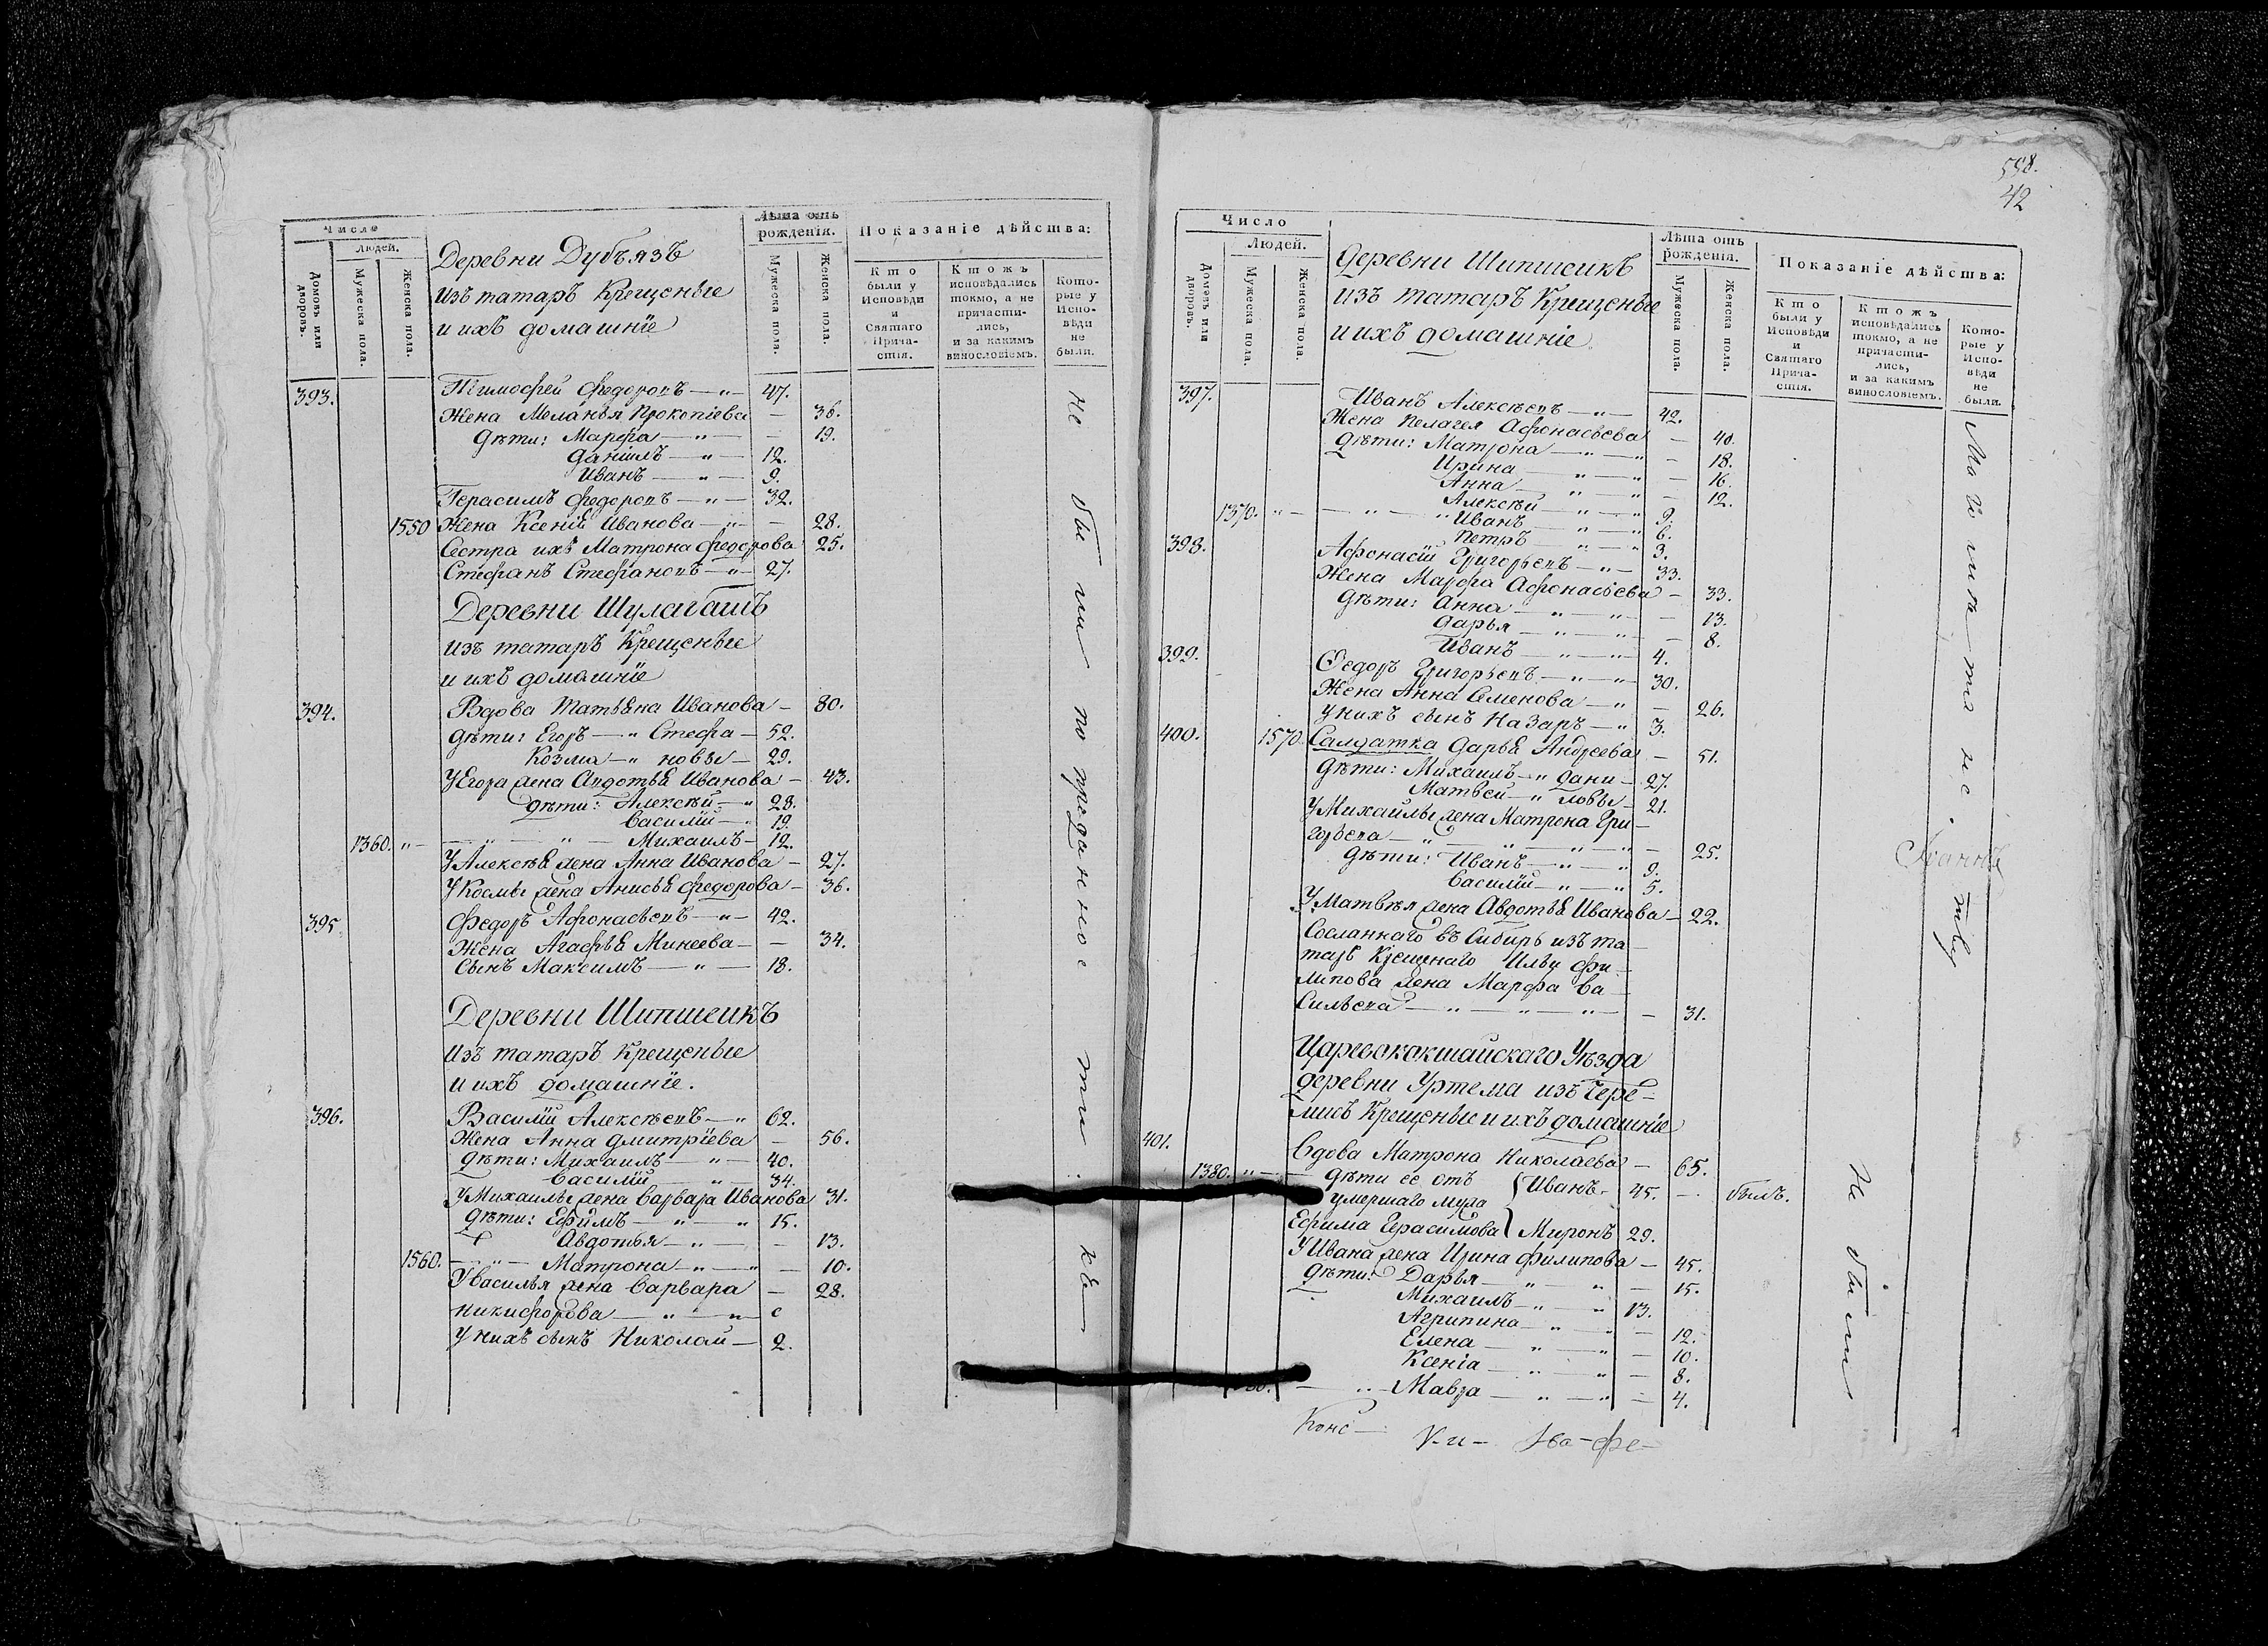 Число
Людей.
Домовъ или дворовъ.
Мужеска пола.
Женска пола.
Деревни Дубъязъ
изъ татаръ Крещеные
и ихъ домашніе
Лѣта отъ рожденія.
Мужеска пола.
Женска пола.
Показаніе дѣйства:
Кто были у Исповѣди и Святаго Причастія.
Ктожъ исповѣдались токмо, а не причастились, и за какимъ винословіемъ.
Которые у Исповѣди не были.
393. Тимофей Федоровъ — " — 47.
Жена Меланья Прокопіева — 36.
Дѣти: Марфа — " — — 19.
Данилъ — " — 12.
Иванъ — " — 9.
Герасимъ Федоровъ — " — 32.
1550 Жена Ксенія Иванова — " — — 28.
Сестра ихъ Матрона Федорова 25.
Стефанъ Стефановъ — " — 27.
Деревни Шулабашъ
изъ татаръ Крещеные
и ихъ домашніе
394. Вдова Татьяна Иванова — 80.
Дѣти: Егоръ — " Стефа — 52.
Козма — " новы — 29.
У Егора жена Авдотья Иванова — 43.
дѣти: Алексѣй — " 28.
Василій — " 19.
1360. " — — " — " — Михаилъ — 12.
У Алексѣя жена Анна Иванова — 27.
У Космы жена Анисья Федорова — 36.
395. Федоръ Афонасьевъ — " — 42.
Жена Агафья Минеева — — 34.
Сынъ Максимъ — " — 18.
Деревни Шипшеикъ
Изъ татаръ Крещеные
и ихъ домашніе.
396. Василій Алексѣевъ — " 62.
Жена Анна Дмитріева — 56.
Дѣти: Михаилъ — " — 40.
Василій — " — 34.
У Михаилы жена Варвара Иванова 31.
Дѣти: Ефимъ — " — " 15.
Авдотья — " — — 13.
1560. — " — Матрона — " — " — 10.
У Василья жена Варвара — 28.
Никифорова — " — "
У нихъ сынъ Николай — 2.
не бы ли по преданнос ти
558.
42
Число
Людей.
Домовъ или дворовъ.
Мужеска пола.
Женска пола.
Деревни Шипшеикъ
изъ татаръ Крещеные
и ихъ домашніе.
Лѣта отъ рожденія.
Мужеска пола.
Женска пола.
Показаніе дѣйства:
Кто были у Исповѣди и Святаго Причастія.
Ктожъ исповѣдались токмо, а не причастились, и за какимъ винословіемъ.
Которые у Исповѣди не были.
397. Иванъ Алексѣевъ — " — 42.
Жена Пелагея Афонасьева — 40.
Дѣти: Матрона — " — " — 18.
Ирина — " — " — 16.
Анна — " — " — 12.
Алексѣй — " — " 9.
1370. " — — " — " Иванъ — " — " 6.
Петръ — " — " 3.
398. Афонасій Григорьевъ — " — 33.
Жена Марфа Афонасьева — 33.
Дѣти: Анна — " — " — 13.
Дарья — " — " — 8.
Иванъ — " — " 4.
399. Ѳедоръ Григорьевъ — " — " 30.
Жена Анна Семенова — " — 26.
У нихъ сынъ Назаръ — " 3.
400. 1570. Салдатка Дарья Андреева — 51.
Дѣти: Михаилъ — " Дани — 27.
Матвей — " ловы — 21.
У Михайлы жена Матрона Гри —
горьева — " — " — " — 25.
Дѣти: Иванъ — " — " 9.
Василій — " — " 5.
У Матвѣя жена Авдотья Иванова — 22.
Сосланнаго въ Сибирь изъ та —
таръ Крещенаго Ильи Фи —
липова жена Марфа Ва —
сильева — " — " — " — 31.
Царевококшайскаго Уѣзда
деревни Уртема изъ Чере —
мисъ Крещеные и ихъ домашніе
401. Вдова Матрона Николаева — 65.
1380. " — — Дѣти ее отъ { Иванъ — 45. — былъ.
умершаго мужа
Ефима Герасимова } Миронъ 29.
У Ивана жена Ирина Филипова — 45.
Дѣти: Дарья — " — " — 15.
Михаилъ — " — " 13.
Агрипина — " — " — 12.
Елена — " — " — 10.
Ксенія — " — " — 8.
— " — Мавра — " — " — 4.
Не были